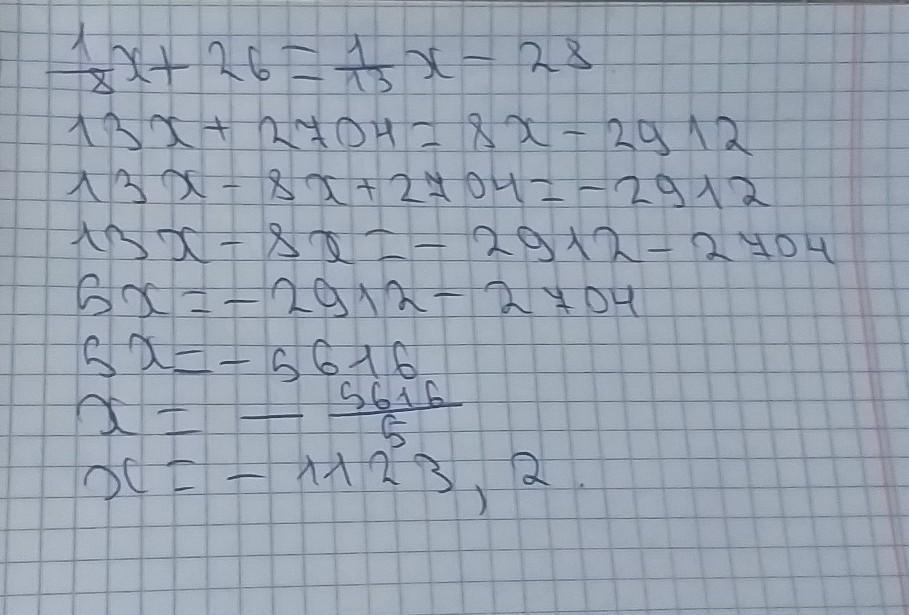 1/8 x + 26 = 1/13 x - 28
13x + 2704 = 8x - 2912
13x - 8x + 2704 = - 2912
13x - 8x = - 2912 - 2704
5x = - 2912 - 2704
5x = - 5616
x = - 5616/5
x = - 1123,2.